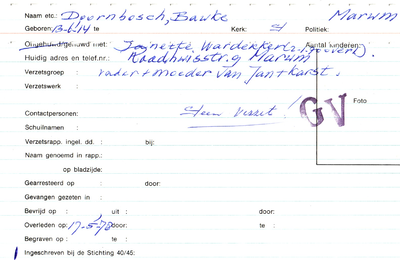 Naam etc.: Doornbosch, Bauke Marum
Geboren: 13-6-14 te Kerk: Politiek:
Ongehuwd/gehuwd met: Jannette Wardekker Aantal kinderen:
Huidig adres en telef.nr.: Raadhuisstr. 9 Marum
Verzetsgroep : vader + moeder van Jant Karst.
Verzetswerk :
Foto
Contactpersonen: Geen verzet!
GV
Schuilnamen :
Verzetsrapp. ingel. dd. : bij:
Naam genoemd in rapp.:
op bladzijde:
Gearresteerd op : door:
Gevangen gezeten in :
Bevrijd op : uit : door:
Overleden op: 17-5-78 door: te :
Begraven op : te :
Ingeschreven bij de Stichting 40/45: